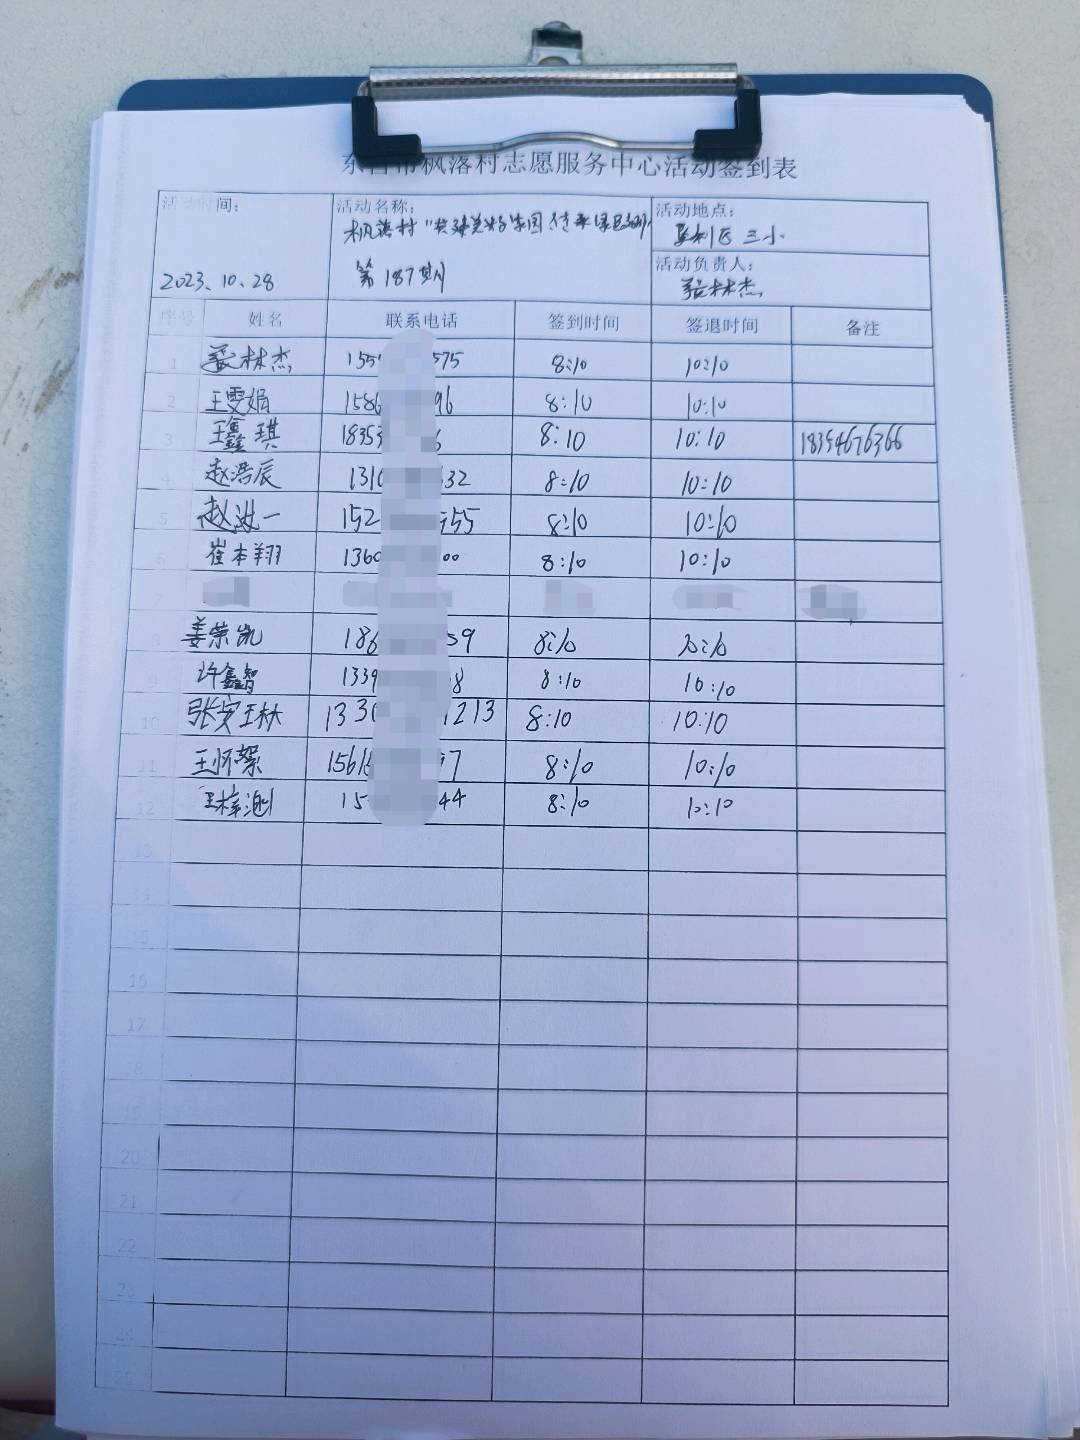 东营市枫落村志愿服务中心活动签到表
活动时间： 活动名称： 活动地点：
枫落村“共建美好家园 垦利区三小
2023.10.28 第187期 活动负责人：
林杰
序号 姓名 联系电话 签到时间 签退时间 备注
1 林杰 155 575 8:10 10:10
2 王雯娟 1586 96 8:10 10:10
3 王鑫琪 18353 6 8:10 10:10 18354676366
4 赵浩辰 1310 332 8:10 10:10
5 赵洪一 152 555 8:10 10:10
6 崔本翔 1360 00 8:10 10:10
7
8 姜荣凯 186 59 8:10 10:10
9 许鑫智 1339 8 8:10 10:10
10 张安 1330 1213 8:10 10:10
11 王怀絮 1561 97 8:10 10:10
12 王梓 15 44 8:10 10:10
13
14
15
16
17
18
19
20
21
22
23
24
25